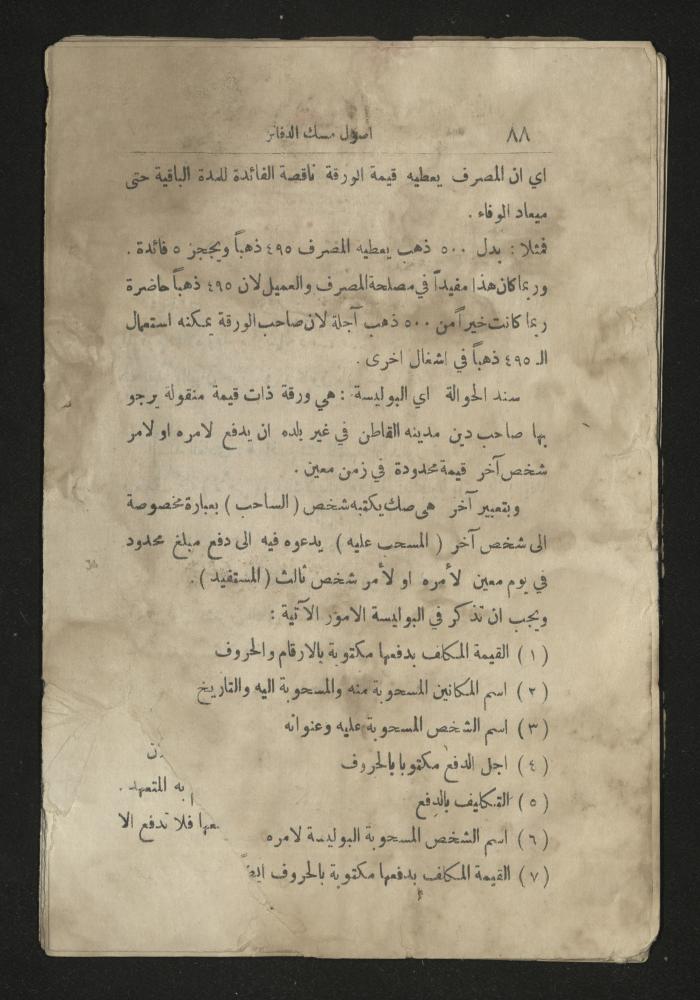 ٨٨
اصول مسك الدفاتر
اي ان المصرف يعطيه قيمة الورقة ناقصة الفائدة للمدة الباقية حتى
ميعاد الوفاء .
فمثلا : بدل ٥٠٠ ذهب يعطيه المصرف ٤٩٥ ذهباً ويحجز ٥ فائدة .
وربما كان هذا مفيداً في مصلحة المصرف والعميل لان ٤٩٥ ذهباً حاضرة
ربما كانت خيراً من ٥٠٠ ذهب آجلة لان صاحب الورقة يمكنه استعمال
الـ ٤٩٥ ذهباً في اشغال اخرى .
سند الحوالة اي البوليسة : هي ورقة ذات قيمة منقولة يرجو
بها صاحب دين مدينه القاطن في غير بلده ان يدفع لامره او لامر
شخص آخر قيمة محدودة في زمن معين .
وبتعبير آخر هي صك يكتبه شخص ( الساحب ) بعبارة مخصوصة
الى شخص آخر ( المسحب عليه ) يدعوه فيه الى دفع مبلغ محدود
في يوم معين لأمره او لأمر شخص ثالث ( المستفيد ) .
ويجب ان تذكر في البوليسة الامور الآتية :
( ١ ) القيمة المكلف بدفعها مكتوبة بالارقام والحروف
( ٢ ) اسم المكانين المسحوبة منه والمسحوبة اليه والتاريخ
( ٣ ) اسم الشخص المسحوبة عليه وعنوانه
( ٤ ) اجل الدفع مكتوبا بالحروف
( ٥ ) التكليف بالدفع
به المتعهد .
( ٦ ) اسم الشخص المسحوبة البوليسة لامره
فلا تدفع الا
( ٧ ) القيمة المكلف بدفعها مكتوبة بالحروف